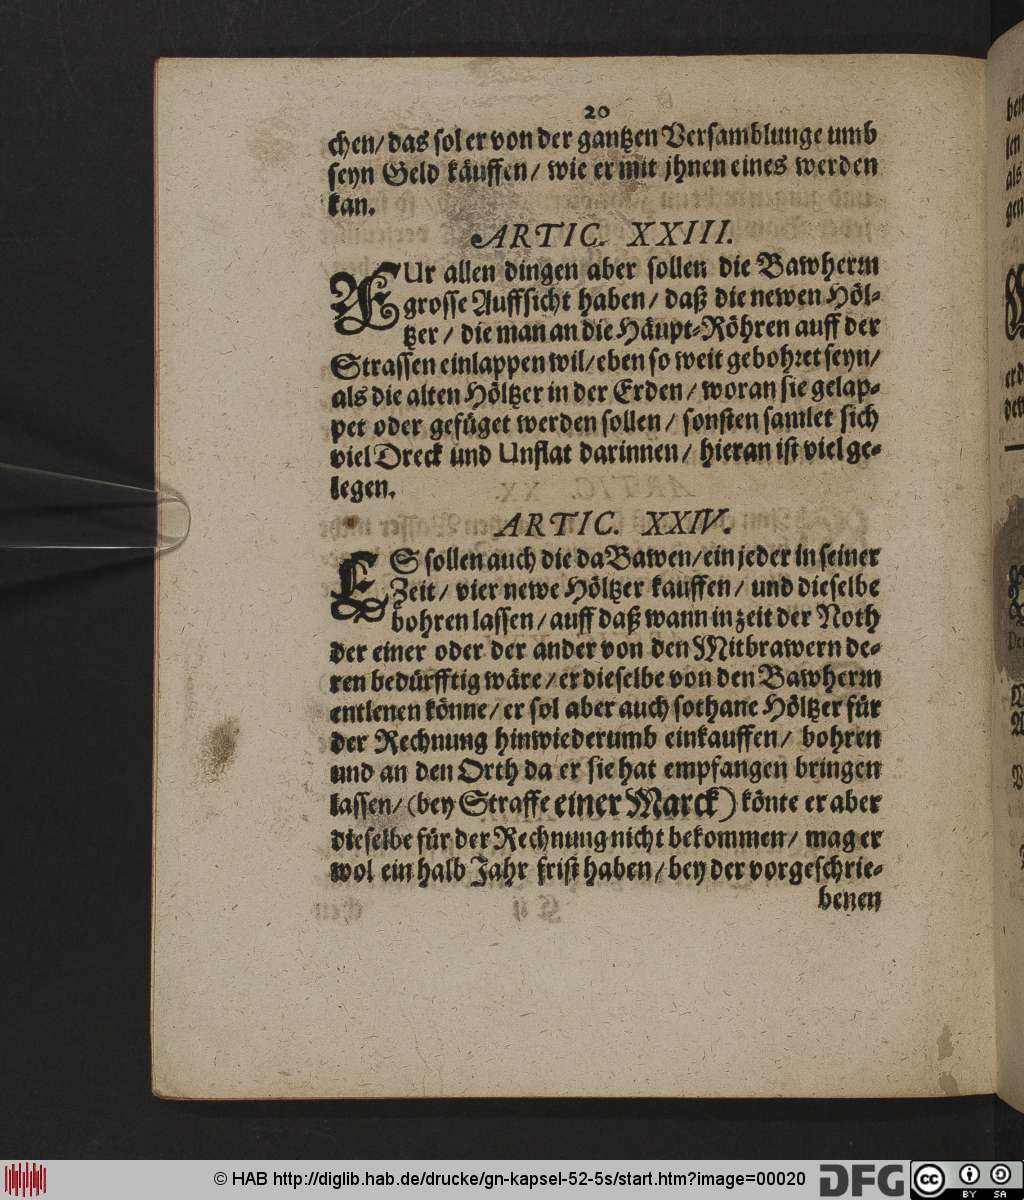 20
chen/ das sol er von der gantzen Versamblunge umb
seyn Geld käuffen/ wie er mit jhnen eines werden
kan.
ARTIC. XXIII.
FUr allen dingen aber sollen die Bawherrn
grosse Auffsicht haben/ daß die newen Höl-
tzer/ die man an die Häupt-Röhren auff der
Strassen einlappen wil/ eben so weit gebohret seyn/
als die alten Höltzer in der Erden/ woran sie gelap-
pet oder gefüget werden sollen/ sonsten samlet sich
viel Dreck und Unflat darinnen/ hieran ist viel ge-
legen.
ARTIC. XXIV.
ES sollen auch die da Bawen/ ein jeder in seiner
Zeit/ vier newe Höltzer kauffen/ und dieselbe
bohren lassen/ auff daß wann in zeit der Noth
der einer oder der ander von den Mitbrawern de-
ren bedürfftig wäre/ er dieselbe von den Bawherrn
entlenen könne/ er sol aber auch sothane Höltzer für
der Rechnung hinwiederumb einkauffen/ bohren
und an den Orth da er sie hat empfangen bringen
lassen/ (bey Straffe einer Marck) könte er aber
dieselbe für der Rechnung nicht bekommen/ mag er
wol ein halb Jahr frist haben/ bey der vorgeschrie-
benen
© HAB http://diglib.hab.de/drucke/gn-kapsel-52-5s/start.htm?image=00020
DFG
cc
BY SA